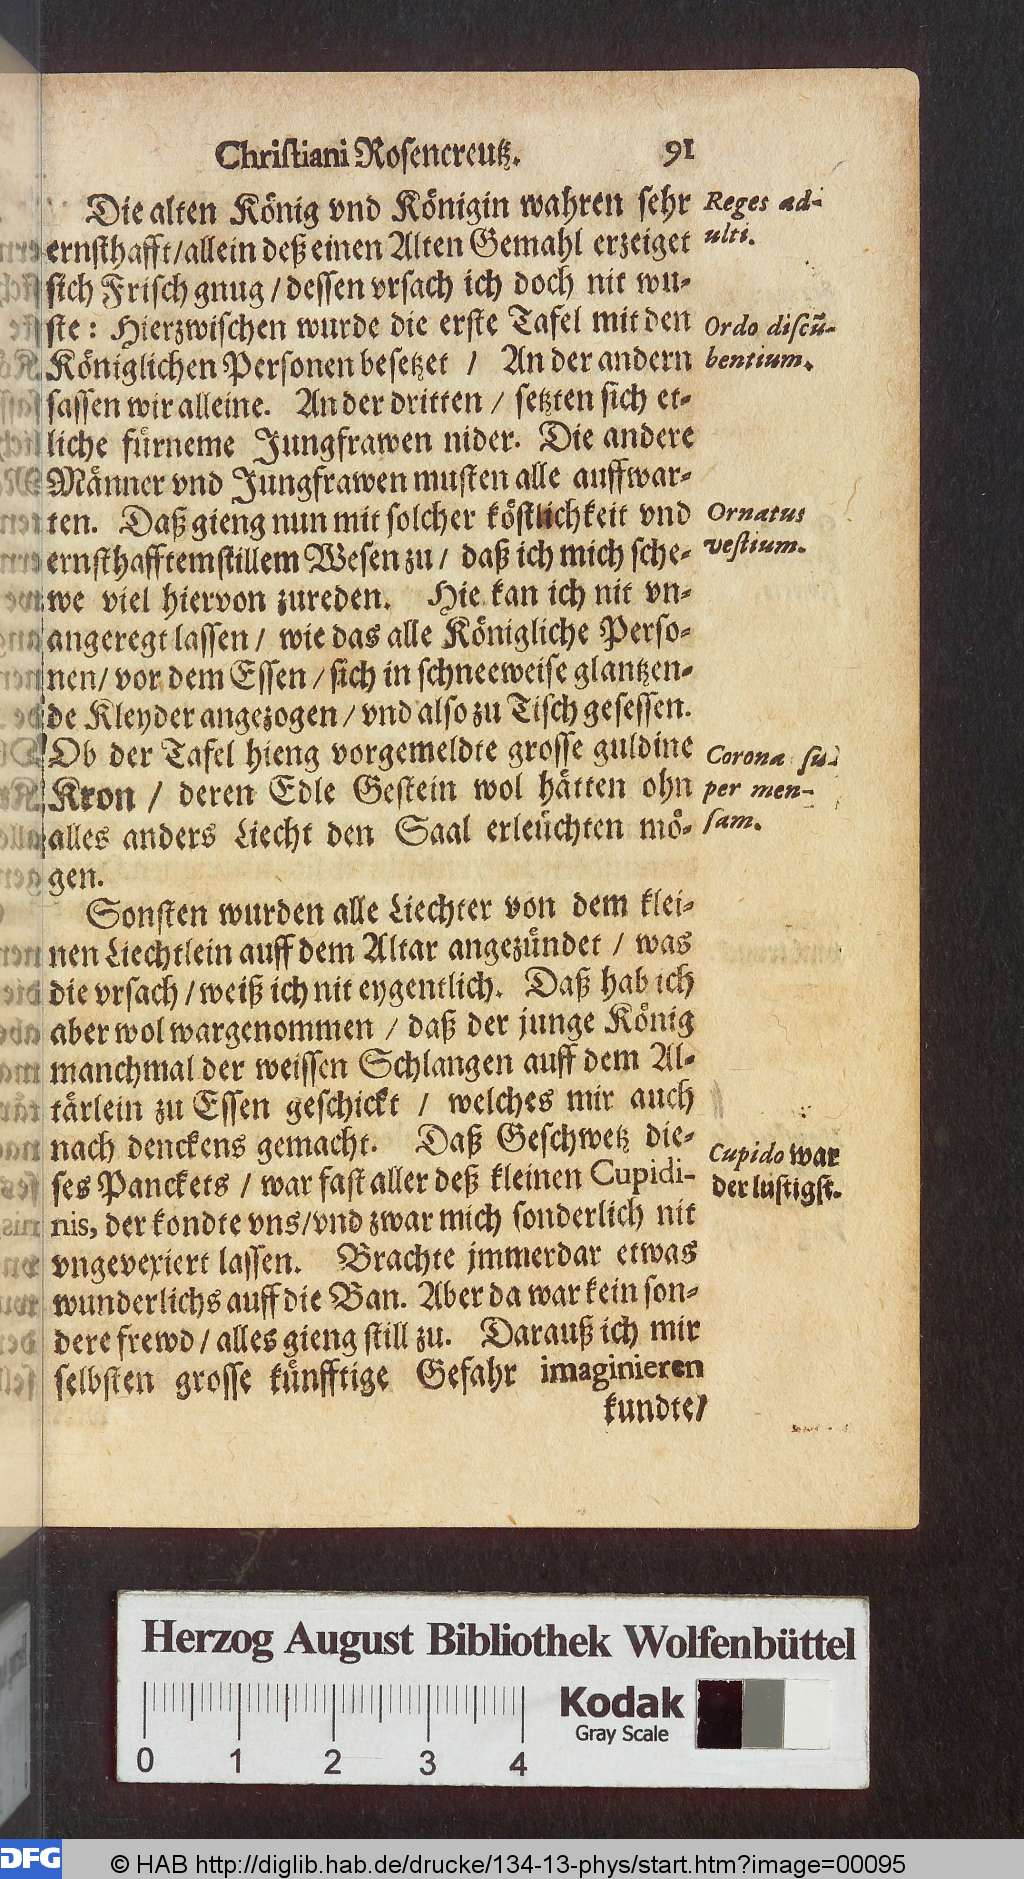 Chriſtiani Roſencreutz. 91
Die alten König vnd Königin wahren ſehr
ernſthafft/allein deß einen Alten Gemahl erzeiget
ſich Friſch gnug / deſſen vrſach ich doch nit wu-
ſte: Hierzwiſchen wurde die erſte Tafel mit den
Königlichen Perſonen beſetzet / An der andern
ſaſſen wir alleine. An der dritten / ſetzten ſich et-
liche fürneme Jungfrawen nider. Die andere
Männer vnd Jungfrawen muſten alle auffwar-
ten. Daß gieng nun mit ſolcher köſtlichkeit vnd
ernſthafftemſtillem Weſen zu / daß ich mich ſche-
we viel hiervon zureden. Hie kan ich nit vn-
angeregt laſſen / wie das alle Königliche Perſo-
nen/ vor dem Eſſen / ſich in ſchneeweiſe glantzen-
de Kleyder angezogen / vnd alſo zu Tiſch geſeſſen.
Ob der Tafel hieng vorgemeldte groſſe guldine
Kron / deren Edle Geſtein wol hätten ohn
alles anders Liecht den Saal erleüchten mö-
gen.
Sonſten wurden alle Liechter von dem klei-
nen Liechtlein auff dem Altar angezündet / was
die vrſach / weiß ich nit eygentlich. Daß hab ich
aber wol wargenommen / daß der junge König
manchmal der weiſſen Schlangen auff dem Al-
tärlein zu Eſſen geſchickt / welches mir auch
nach denckens gemacht. Daß Geſchwetz die-
ſes Panckets / war faſt aller deß kleinen Cupidi-
nis, der kondte vns/vnd zwar mich ſonderlich nit
vngevexiert laſſen. Brachte jmmerdar etwas
wunderlichs auff die Ban. Aber da war kein ſon-
dere frewd / alles gieng ſtill zu. Darauß ich mir
ſelbſten groſſe künfftige Gefahr imaginieren
kundte/
Reges ad-
ulti.
Ordo diſcũ-
bentium.
Ornatus
veſtium.
Corona ſu-
per men-
ſam.
Cupido war
der luſtigſt.
Herzog August Bibliothek Wolfenbüttel
Kodak
Gray Scale
0 1 2 3 4
DFG
© HAB http://diglib.hab.de/drucke/134-13-phys/start.htm?image=00095